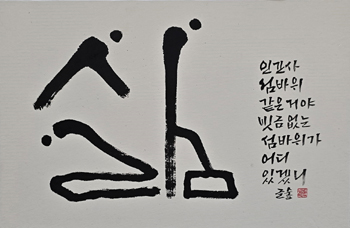 삶
인간사
섬바위
같은거야
빗금없는
섬바위가
어디
있겠니